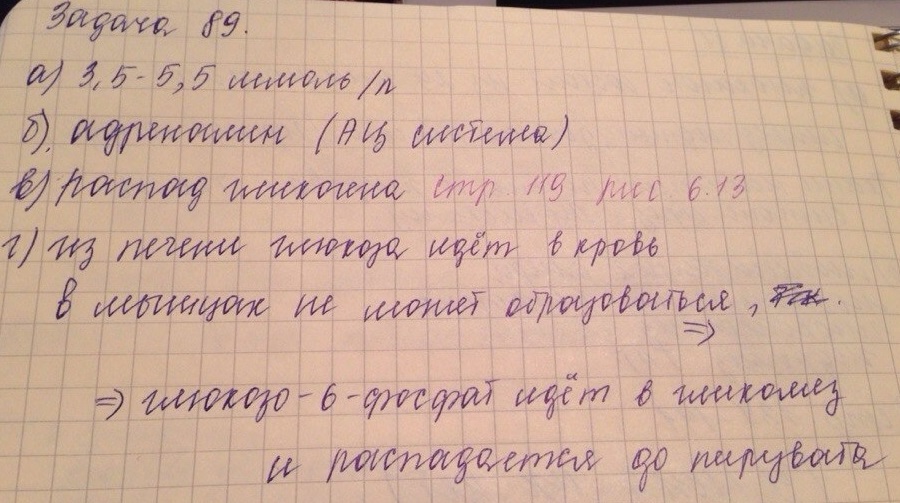 Задача 89.
а) 3,5-5,5 ммоль/л
б). адреналин (АЦ система)
в) распад гликогена стр 119 рис 6.13
г) из печени глюкоза идёт в кровь
в мышцах не может образоваться,
⇒
⇒ глюкозо-6-фосфат идёт в гликолиз
и распадается до пирувата